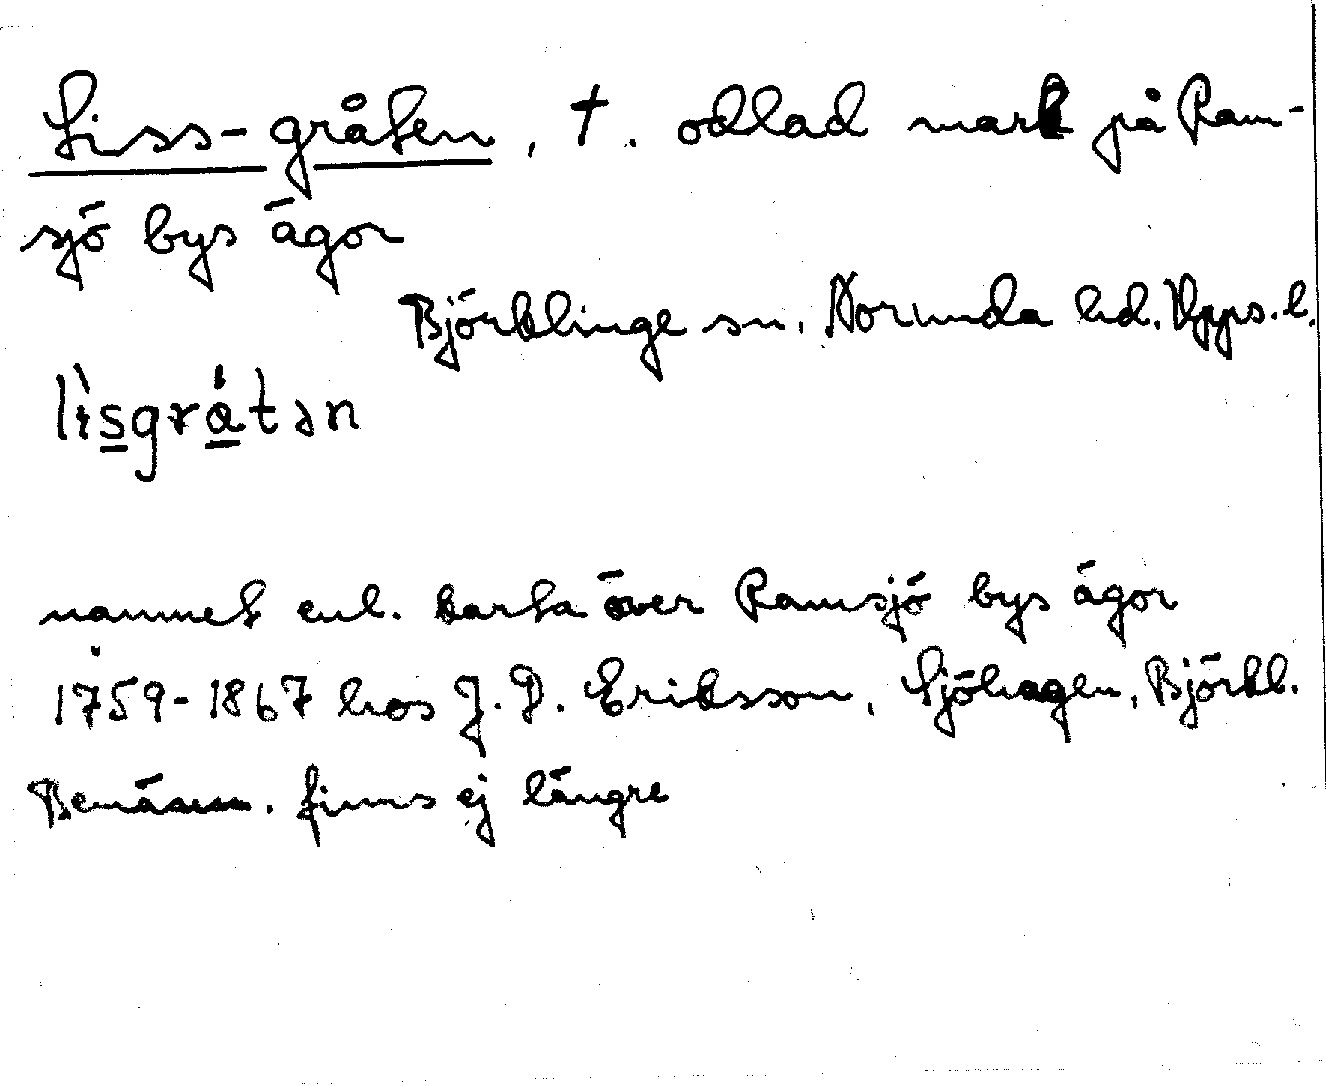 Liss-gråten, †. odlad mark på Ram-
sjö bys ägor
Björklinge sn. Norunda hd. Upps. l.
lìsgrátən
namnet enl. karta över Ramsjö bys ägor
1759-1867 hos J. D. Eriksson, Sjöhagen, Björkl.
Benämn. finns ej längre